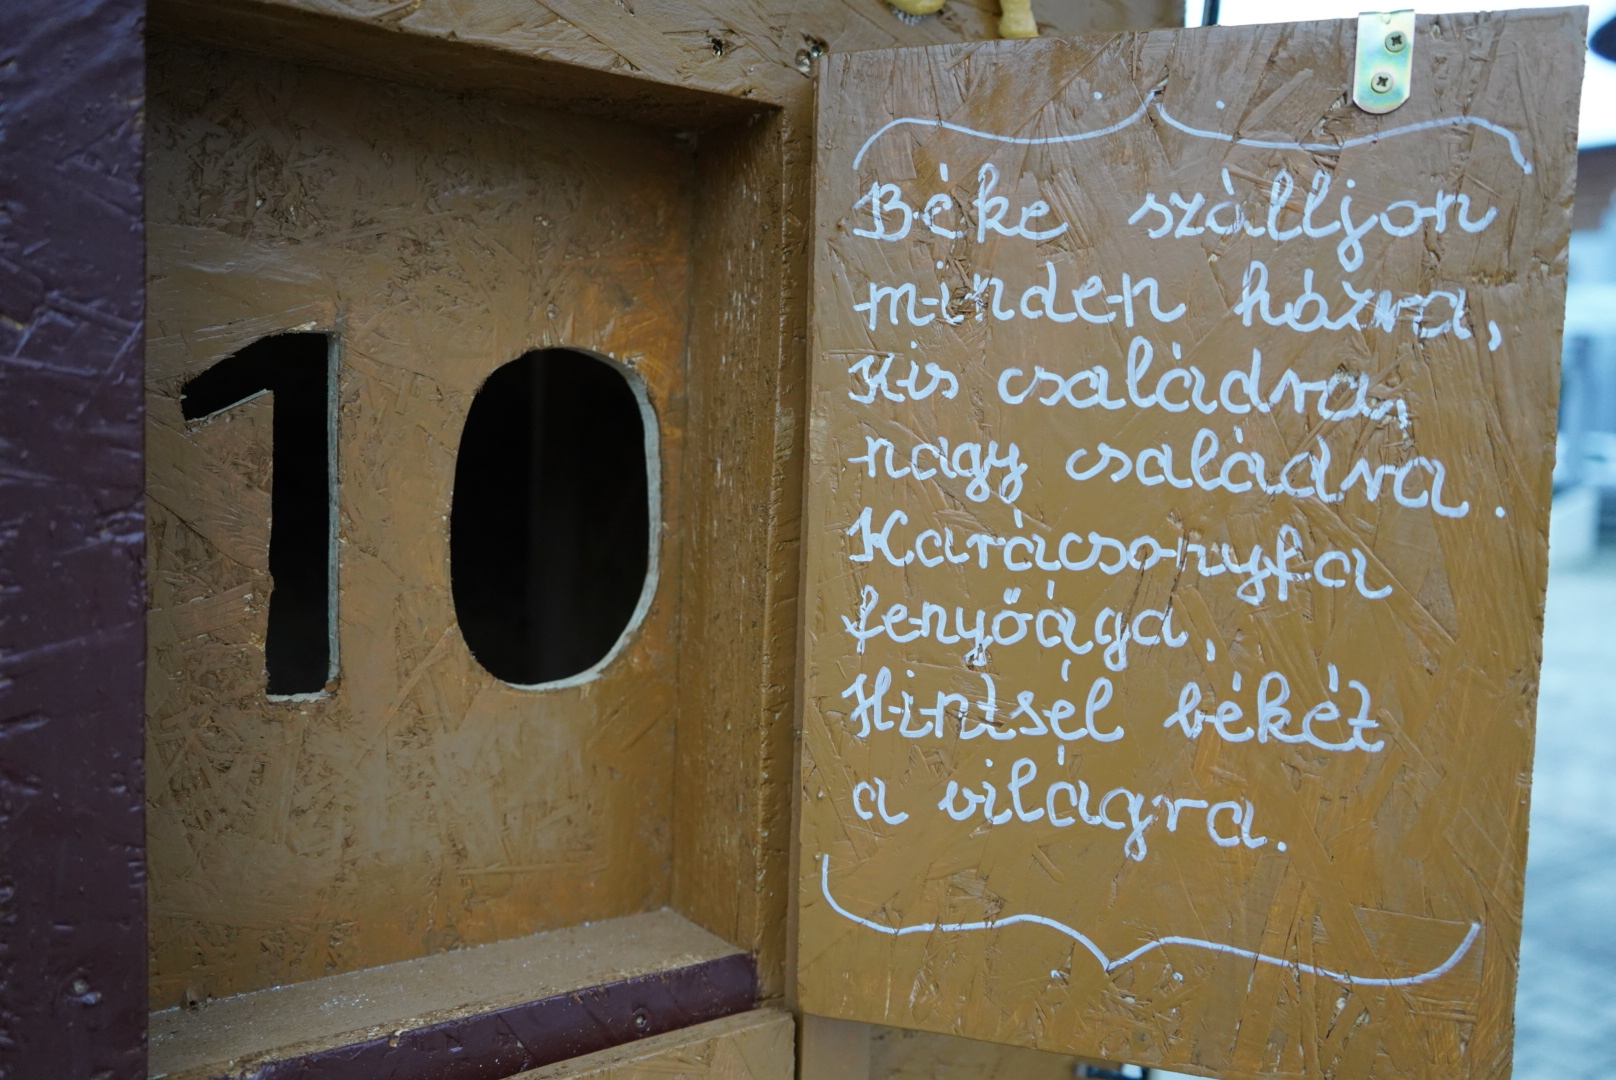 10
Béke szálljon
minden házra,
Kis családra,
nagy családra.
Karácsonyfa
fenyőága,
Hintsél békét
a világra.